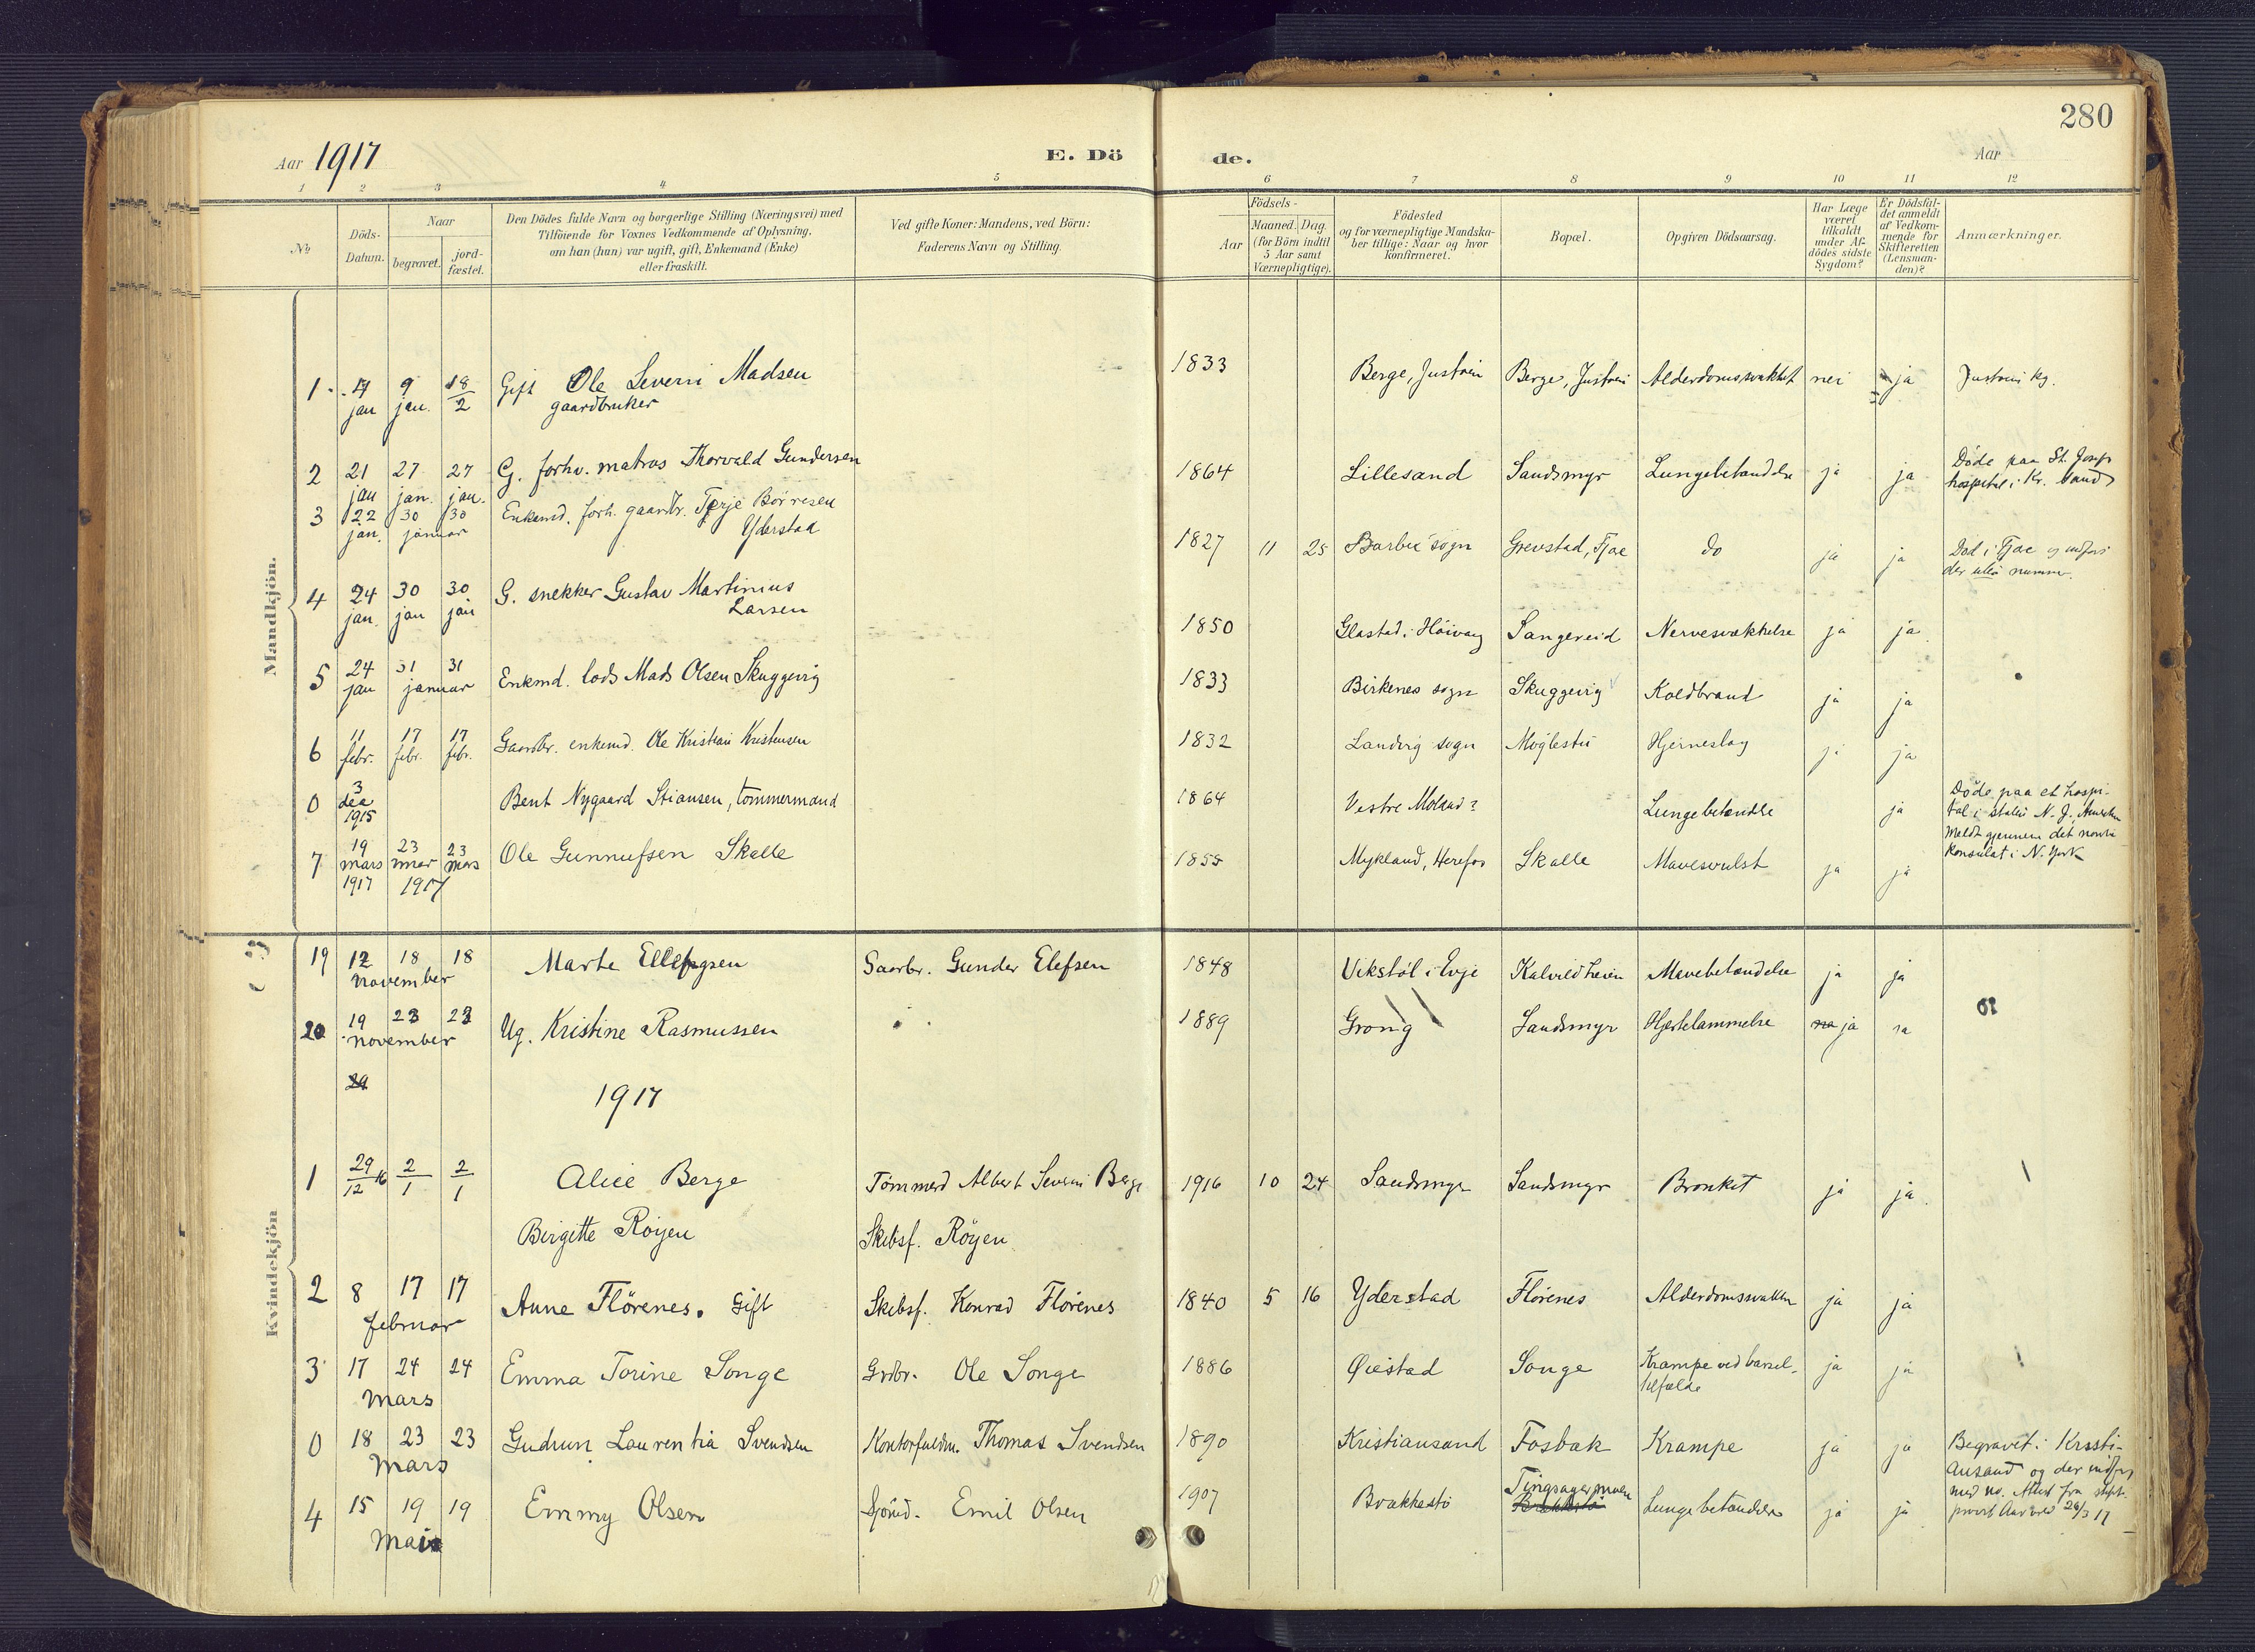 280
Aar 1917
E. Dö de.
Aar
1 2 3 4 5 6 7 8 9 10 11 12
№
Döds-Datum.
Naar
begravet.
jord-fæstet.
Den Dödes fulde Navn og borgerlige Stilling (Næringsvei) med
Tilföiende for Voxnes Vedkommende af Oplysning,
om han (hun) var ugift, gift, Enkemand (Enke)
eller fraskilt.
Ved gifte Koner: Mandens, ved Börn:
Faderens Navn og Stilling.
Födsels-
Aar
Maaned. Dag.
(for Börn indtil
5 Aar samt
Værnepligtige).
Födested
og for værnepligtige Mandska-
ber tillige: Naar og hvor
konfirmeret.
Bopæl.
Opgiven Dödsaarsag.
Har Læge
været
tilkaldt
under Af-
dödes sidste
Sygdom?
Er Dödsfal-
det anmeldt
af Vedkom-
mende for
Skifteretten
(Lensman-
den)?
Anmærkninger.
Mandkjön.
1 jan 9 jan. 18/2 Gift Ole Severin Madsen
gaardbruker
1833 Berge, Justvin Berge, Justvin Alderdomssvakhet nei ja
2 21 jan 27 jan. 27 jan. G. forhv. matros Thorvald Gundersen
1864 Lillesand Sandsmyr Lungebetændelse ja ja Döde paa St. Josefs
hospital i Kr. sand
3 22 jan. 30 30 januar Enkemd. forh. gaardbr. Terje Börresen
Yderstad
1827 11 25 Barbu sogn Grevstad, Fjære do ja ja
4 24 jan. 30 jan 30 jan G. snekker Gustav Martinius
Larsen
1850 Glastad i Höivaag Sangereid Nervesvækkelse ja ja
5 24 jan 31 31 januar Enkmd. lods Mads Olsen Skuggevig
1833 Birkenes sogn Skuggevig Koldbrand ja ja
6 11 febr. 17 febr. 17 febr. Gaardbr. enkemd. Ole Kristian Kristensen
1832 Landvig sogn Möglestu Hjerneslag ja ja
0 3 dec 1915 Bent Nygaard Stiansen, tömmermand
1864 Vestre Moland? Lungebetændelse ja Döde paa et hospi-
tal i staten N. J., Amerika
meldt gjennem det norske
konsulat i N. York
7 19 mars 1917 23 mar 23 mars 1917 Ole Gunnufsen Skalle
1855 Mykland, Herefos Skalle Mavesvulst ja ja
Kvindekjön
19 12 18 18 november Marte Ellefsen Gaarbr. Gunder Elefsen
1848 Vikstöl i Evje Kalvildheien Mavebetændelse ja ja
20 19 23 23 november Ug. Kristine Rasmussen
1889 Grong Sandsmyr Hjertelammelse ja
1917
1 29/12 16 2/1 2/1 Alice Berge Tömmerd Albert Severin Berge
1916 10 24 Sandsmyr Sandsmyr Bronkit ja ja
Birgitte Röyen Skibsf. Röyen
2 8 17 17 februar Anne Flörenes. Gift Skibsf. Konrad Flörenes
1840 5 16 Yderstad Flörenes Alderdomssvakhet ja ja
3 17 24 24 mars Emma Torine Songe Grdbr. Ole Songe
1886 Øiestad Songe Krampe ved barsel-
tilfælde ja ja
0 18 23 23 mars Gudrun Laurentia Svendsen Kontorfuldm. Thomas Svendsen
1890 Kristiansand Fosbæk Krampe ja ja Begravet i Kristi-
ansand og der indført
4 15 19 19 mai Emmy Olsen Sjömd. Emil Olsen
1907 Brækkestö Tingsagermoen Lungebetændelse ja ja